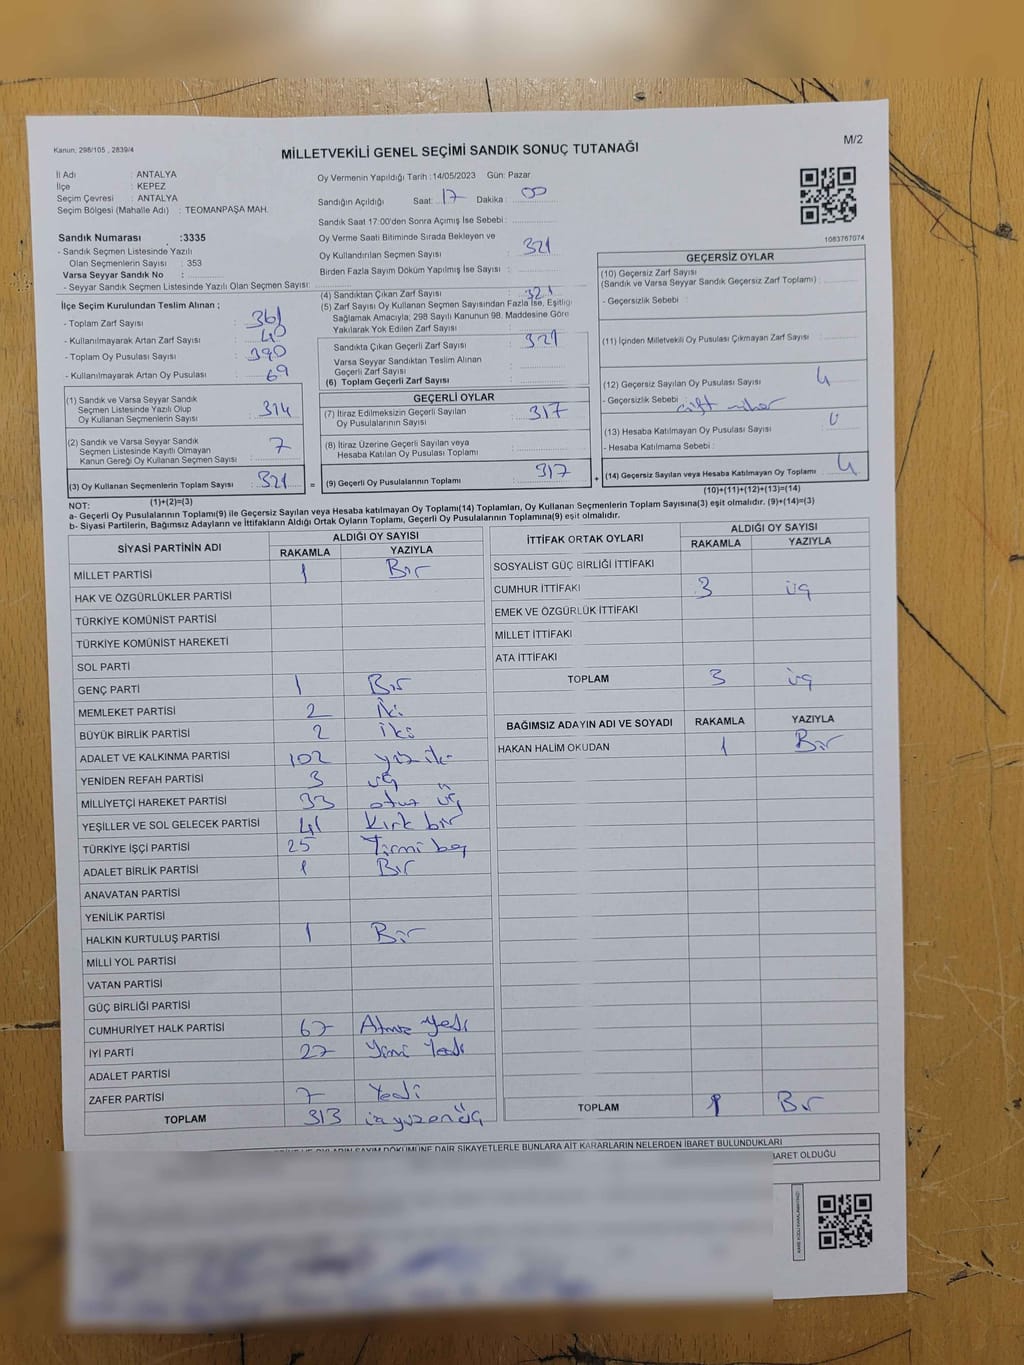 Kanun, 298/105 , 2839/4
M/2
MİLLETVEKİLİ GENEL SEÇİMİ SANDIK SONUÇ TUTANAĞI
İl Adı : ANTALYA
İlçe : KEPEZ
Seçim Çevresi : ANTALYA
Seçim Bölgesi (Mahalle Adı) : TEOMANPAŞA MAH.
Sandık Numarası :3335
- Sandık Seçmen Listesinde Yazılı
Olan Seçmenlerin Sayısı : 353
Varsa Seyyar Sandık No :
- Seyyar Sandık Seçmen Listesinde Yazılı Olan Seçmen Sayısı:
Oy Vermenin Yapıldığı Tarih :14/05/2023 Gün: Pazar
Sandığın Açıldığı Saat: 17 Dakika : 00
Sandık Saat 17:00'den Sonra Açılmış İse Sebebi :
Oy Verme Saati Bitiminde Sırada Bekleyen ve
Oy Kullandırılan Seçmen Sayısı : 321
Birden Fazla Sayım Döküm Yapılmış İse Sayısı :
1083767074
İlçe Seçim Kurulundan Teslim Alınan ;
- Toplam Zarf Sayısı : 361
- Kullanılmayarak Artan Zarf Sayısı : 40
- Toplam Oy Pusulası Sayısı : 390
- Kullanılmayarak Artan Oy Pusulası : 69
(1) Sandık ve Varsa Seyyar Sandık
Seçmen Listesinde Yazılı Olup
Oy Kullanan Seçmenlerin Sayısı : 314
(2) Sandık ve Varsa Seyyar Sandık
Seçmen Listesinde Kayıtlı Olmayan
Kanun Gereği Oy Kullanan Seçmen Sayısı : 7
(3) Oy Kullanan Seçmenlerin Toplam Sayısı : 321
(1)+(2)=(3)
(4) Sandıktan Çıkan Zarf Sayısı : 321
(5) Zarf Sayısı Oy Kullanan Seçmen Sayısından Fazla İse, Eşitliği
Sağlamak Amacıyla; 298 Sayılı Kanunun 98. Maddesine Göre
Yakılarak Yok Edilen Zarf Sayısı :
Sandıkta Çıkan Geçerli Zarf Sayısı : 321
Varsa Seyyar Sandıktan Teslim Alınan
Geçerli Zarf Sayısı :
(6) Toplam Geçerli Zarf Sayısı :
GEÇERLİ OYLAR
(7) İtiraz Edilmeksizin Geçerli Sayılan
Oy Pusulalarının Sayısı : 317
(8) İtiraz Üzerine Geçerli Sayılan veya
Hesaba Katılan Oy Pusulası Toplamı :
= (9) Geçerli Oy Pusulalarının Toplamı : 317
GEÇERSİZ OYLAR
(10) Geçersiz Zarf Sayısı
(Sandık ve Varsa Seyyar Sandık Geçersiz Zarf Toplamı) :
- Geçersizlik Sebebi :
(11) İçinden Milletvekili Oy Pusulası Çıkmayan Zarf Sayısı :
(12) Geçersiz Sayılan Oy Pusulası Sayısı : 4
- Geçersizlik Sebebi : çift mühür
(13) Hesaba Katılmayan Oy Pusulası Sayısı : 0
- Hesaba Katılmama Sebebi :
+ (14) Geçersiz Sayılan veya Hesaba Katılmayan Oy Toplamı : 4
(10)+(11)+(12)+(13)=(14)
NOT:
a- Geçerli Oy Pusulalarının Toplamı(9) ile Geçersiz Sayılan veya Hesaba katılmayan Oy Toplamı(14) Toplamları, Oy Kullanan Seçmenlerin Toplam Sayısına(3) eşit olmalıdır. (9)+(14)=(3)
b- Siyasi Partilerin, Bağımsız Adayların ve İttifakların Aldığı Ortak Oyların Toplamı, Geçerli Oy Pusulalarının Toplamına(9) eşit olmalıdır.
SİYASİ PARTİNİN ADI ALDIĞI OY SAYISI
RAKAMLA YAZIYLA
MİLLET PARTİSİ 1 Bir
HAK VE ÖZGÜRLÜKLER PARTİSİ
TÜRKİYE KOMÜNİST PARTİSİ
TÜRKİYE KOMÜNİST HAREKETİ
SOL PARTİ
GENÇ PARTİ 1 Bir
MEMLEKET PARTİSİ 2 İki
BÜYÜK BİRLİK PARTİSİ 2 iki
ADALET VE KALKINMA PARTİSİ 102 yüz iki
YENİDEN REFAH PARTİSİ 3 üç
MİLLİYETÇİ HAREKET PARTİSİ 33 otuz üç
YEŞİLLER VE SOL GELECEK PARTİSİ 41 Kırk bir
TÜRKİYE İŞÇİ PARTİSİ 25 Yirmi beş
ADALET BİRLİK PARTİSİ 1 Bir
ANAVATAN PARTİSİ
YENİLİK PARTİSİ
HALKIN KURTULUŞ PARTİSİ 1 Bir
MİLLİ YOL PARTİSİ
VATAN PARTİSİ
GÜÇ BİRLİĞİ PARTİSİ
CUMHURİYET HALK PARTİSİ 67 Atmış Yedi
İYİ PARTİ 27 Yirmi Yedi
ADALET PARTİSİ
ZAFER PARTİSİ 7 Yedi
TOPLAM 313 üçyüzonüç
İTTİFAK ORTAK OYLARI ALDIĞI OY SAYISI
RAKAMLA YAZIYLA
SOSYALİST GÜÇ BİRLİĞİ İTTİFAKI
CUMHUR İTTİFAKI 3 üç
EMEK VE ÖZGÜRLÜK İTTİFAKI
MİLLET İTTİFAKI
ATA İTTİFAKI
TOPLAM 3 üç
BAĞIMSIZ ADAYIN ADI VE SOYADI RAKAMLA YAZIYLA
HAKAN HALİM OKUDAN 1 Bir
TOPLAM 1 Bir
SAYIM DÖKÜMÜNE DAİR ŞİKAYETLERLE BUNLARA AİT KARARLARIN NELERDEN İBARET BULUNDUKLARI
BARET OLDUĞU